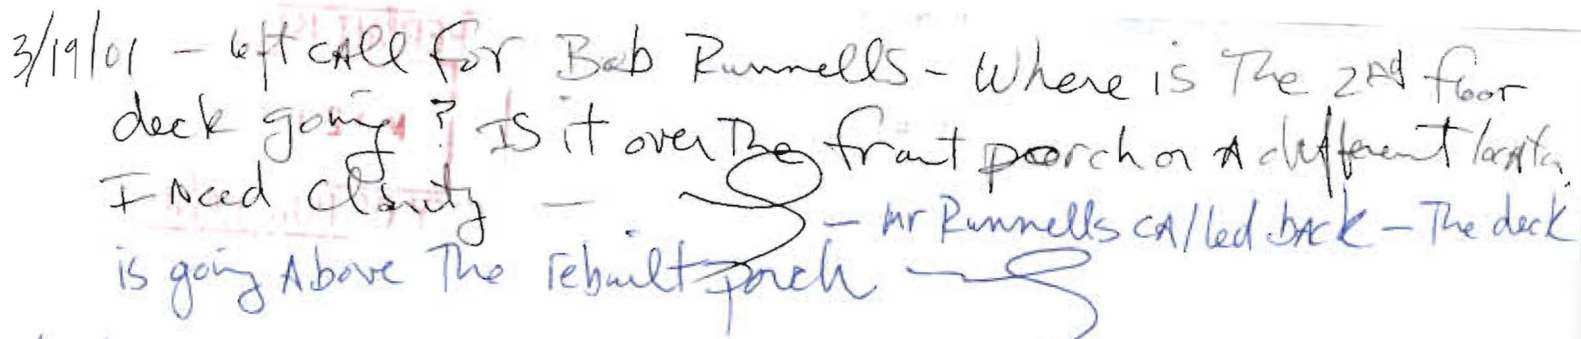 3/19/01 - left call for Bob Runnells - Where is The 2nd floor
deck going? Is it over The front porch or A different location.
I Need Clarity -
- Mr Runnells called back - The deck
is going Above The rebuilt porch